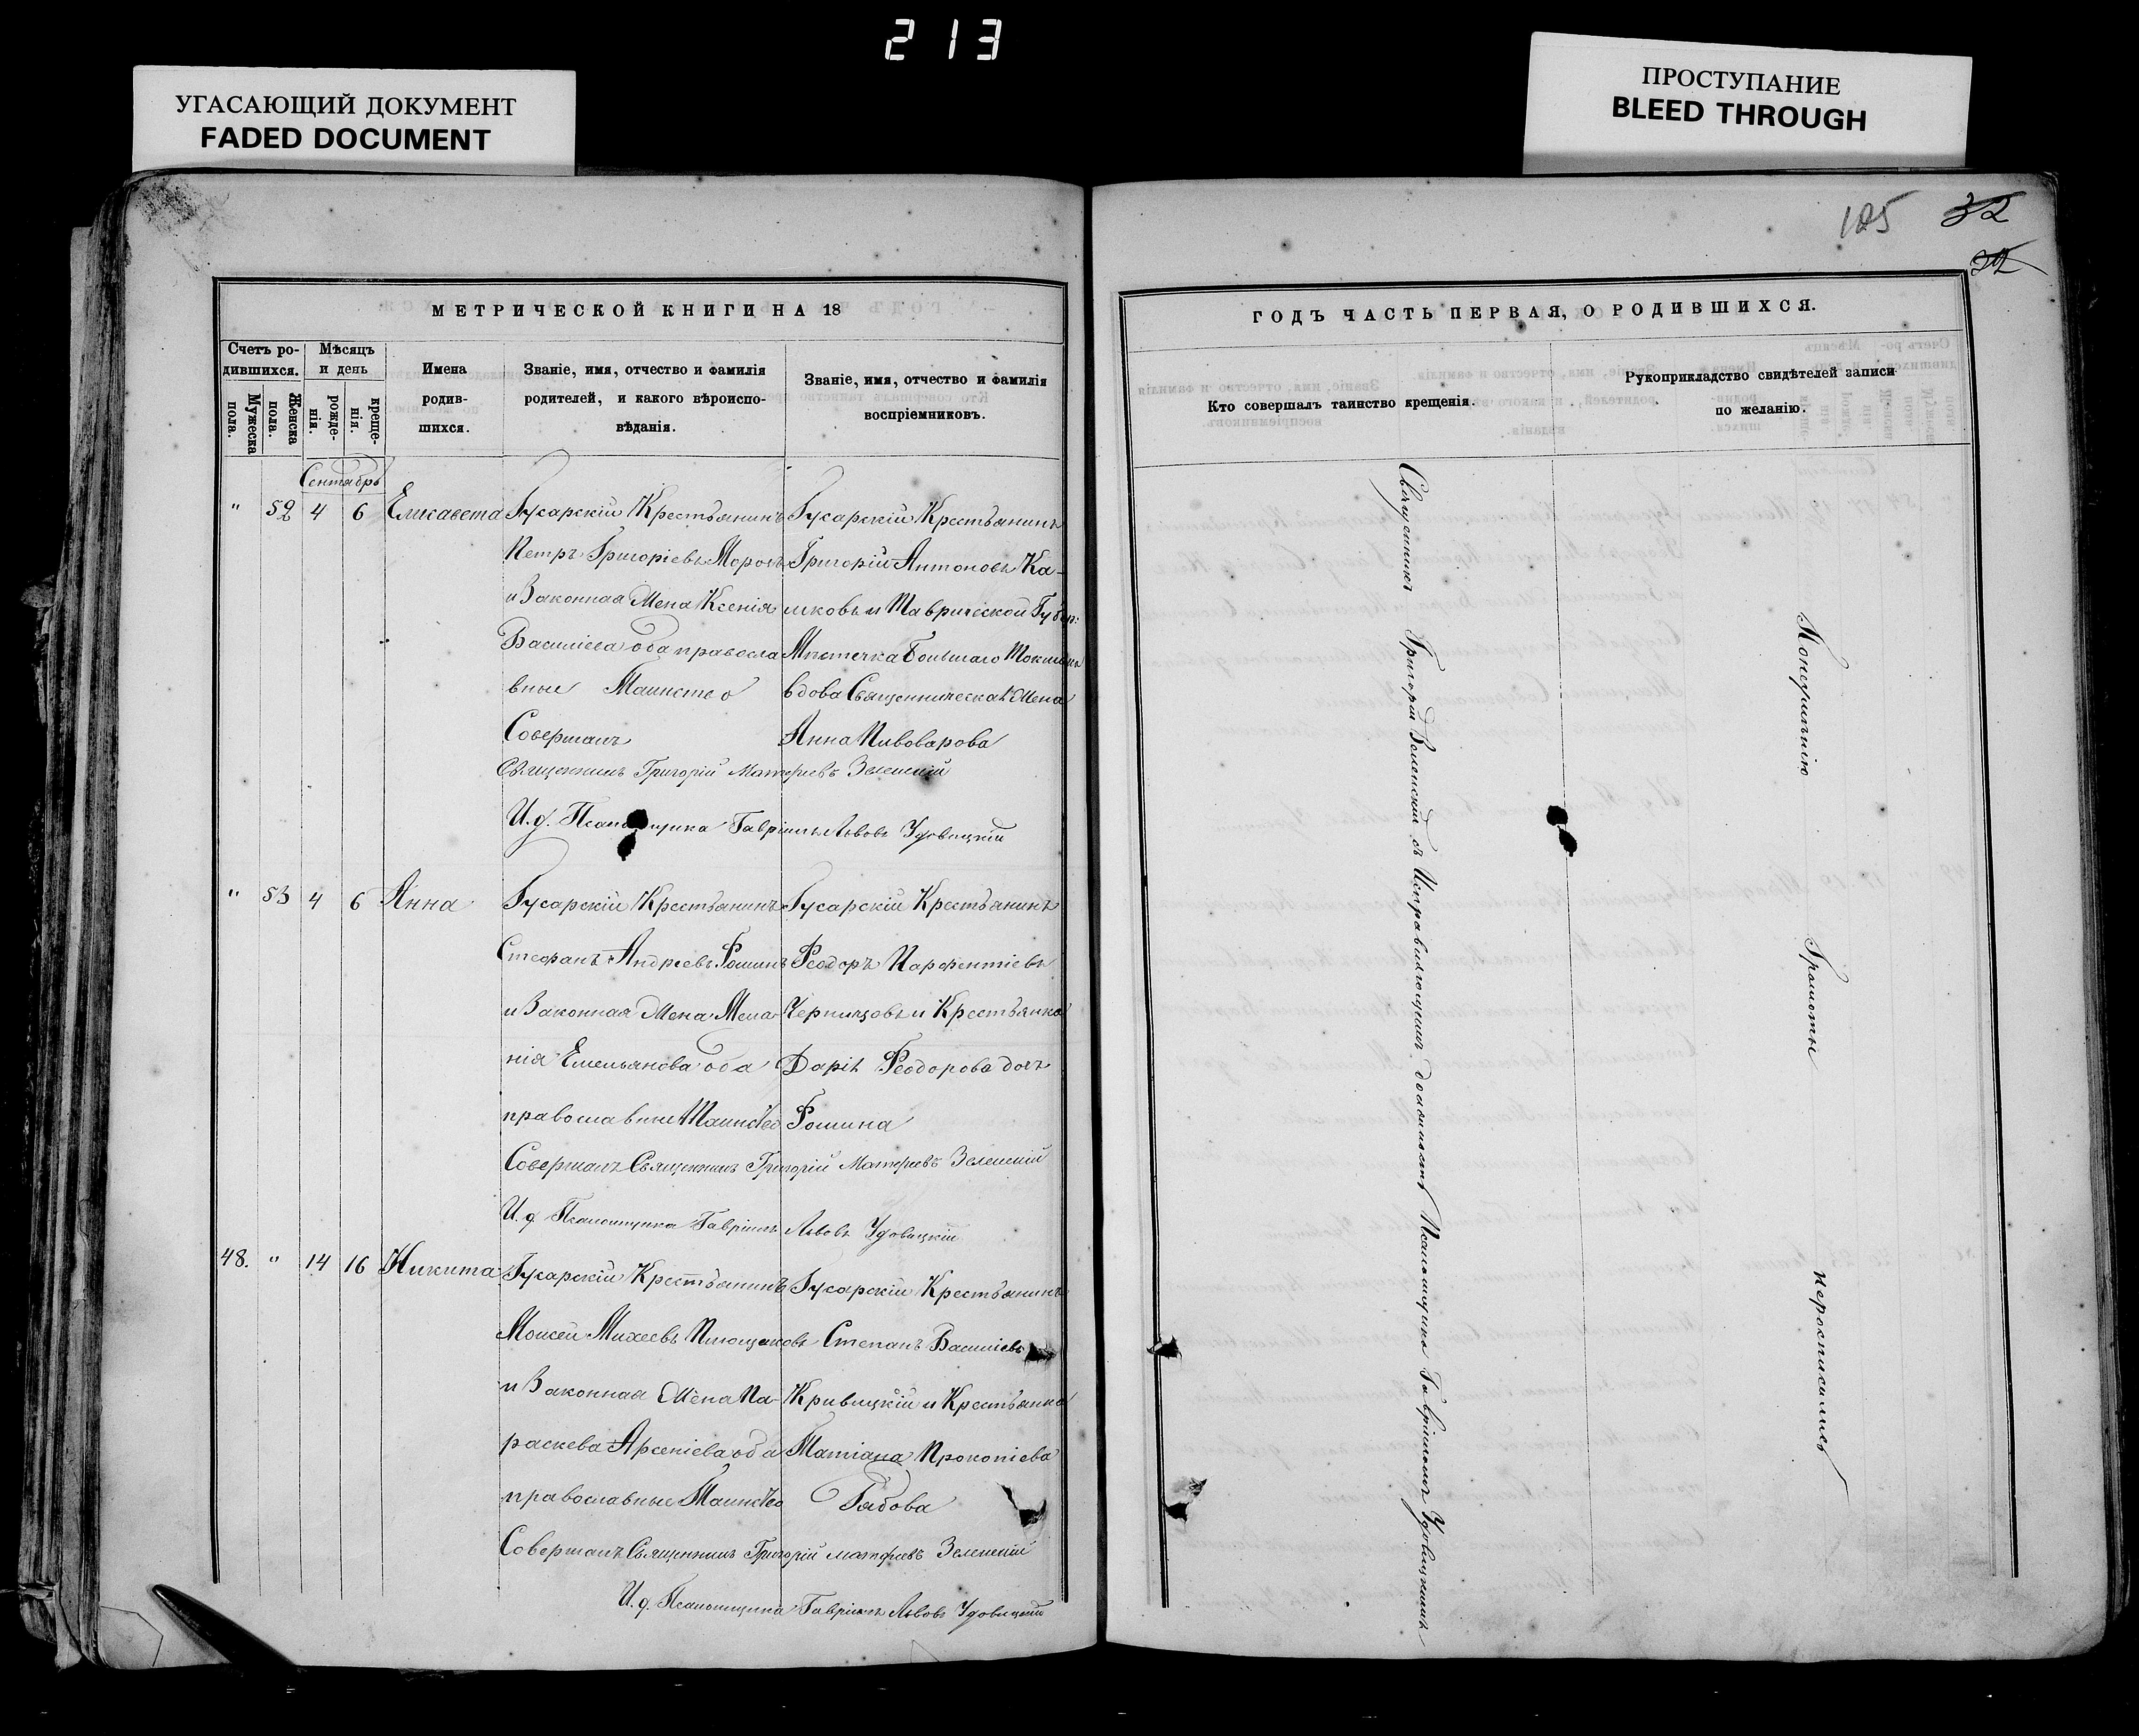 213
УГАСАЮЩИЙ ДОКУМЕНТ
FADED DOCUMENT
ПРОСТУПАНИЕ
BLEED THROUGH
125 32
МЕТРИЧЕСКОЙ КНИГИ НА 18
Счетъ родившихся.
Мужеска пола.
Женска пола.
Мѣсяцъ и день
рожденія.
крещенія.
Имена родившихся.
Званіе, имя, отчество и фамилія родителей, и какого вѣроисповѣданія.
Званіе, имя, отчество и фамилія воспріемниковъ.
Сентабрь
" 52 4 6 Елисавета
Гусарскій Крестьянинъ
Петръ Григоріевъ Морозъ
и Законная Жена Ксенія
Василіева оба правосла
вные Таинство
Совершалъ
Гусарскій Крестьянинъ
Григорій Антоновъ Ка-
и Таврической Губер:
Мѣстечка Большаго Токмака
вдова Священническая Жена
Анна Пивоварова
Священникъ Григорій Матфеевъ Зеленскій
И. д. Псаломщика Гавріилъ Львовъ Удовицкій
" 53 4 6 Анна
Гусарскій Крестьянинъ
Стефанъ Андреевъ Фоминъ
и Законная Жена Мела-
нія Емельянова оба
православные Таинство
Гусарскій Крестьянинъ
Феодоръ Парфентіевъ
и Крестьянка
Дарія Феодорова дочь
Фомина
Совершалъ Священникъ Григорій Матфеевъ Зеленскій
И. д. Псаломщика Гавріилъ Львовъ Удовицкій
48. " 14 16 Никита
Гусарскій Крестьянинъ
Моисей Михеевъ
и Законная Жена Па-
раскева Арсеніева оба
православные Таинство
Гусарскій Крестьянинъ
Степанъ Василіевъ
Кривицкій и Крестьянка
Татіана Прокопіева
Рябова
Совершалъ Священникъ Григорій Матфеевъ Зеленскій
И. д. Псаломщика Гавріилъ Львовъ Удовицкій
ГОДЪ ЧАСТЬ ПЕРВАЯ, О РОДИВШИХСЯ.
Кто совершалъ таинство крещенія.
Рукоприкладство свидѣтелей записи по желанію.
Священникъ Григорій Зеленскій съ Исправляющимъ должность Псаломщика Гавріиломъ Удовицкимъ
Грамоты